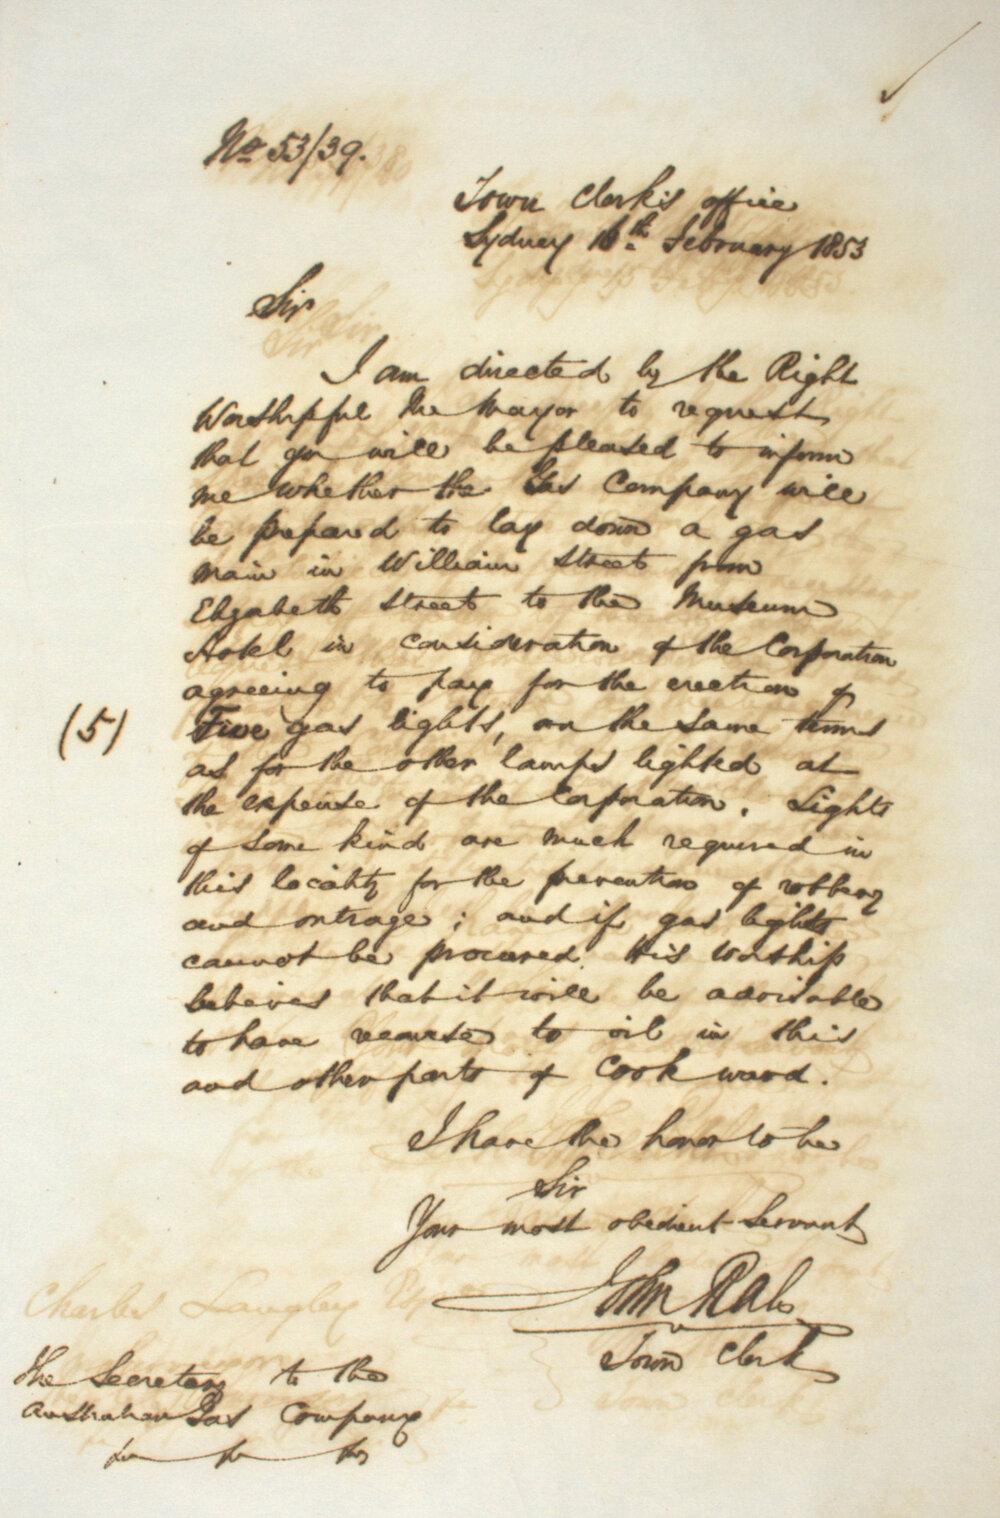 No 53/39.
Town Clerk's office
Sydney 16th February 1853
Sir
I am directed by the Right
Worshipful the Mayor to request
that you will be pleased to inform
me whether the Gas Company will
be prepared to lay down a gas
main in William Street from
Elizabeth Street to the Museum
Hotel in consideration of the Corporation
agreeing to pay for the erection of
(5) Five gas lights, on the same terms
as for the other lamps lighted at
the expense of the Corporation. Lights
of some kind are much required in
this locality for the prevention of robbery
and outrage; and if gas lights
cannot be procured His Worship
believes that it will be advisable
to have recourse to oil in this
and other parts of Cook ward.
I have the honor to be
Sir
Your most obedient Servant
John Rae
Town Clerk
Charles Langley Esq
The Secretary to the
Australian Gas Company